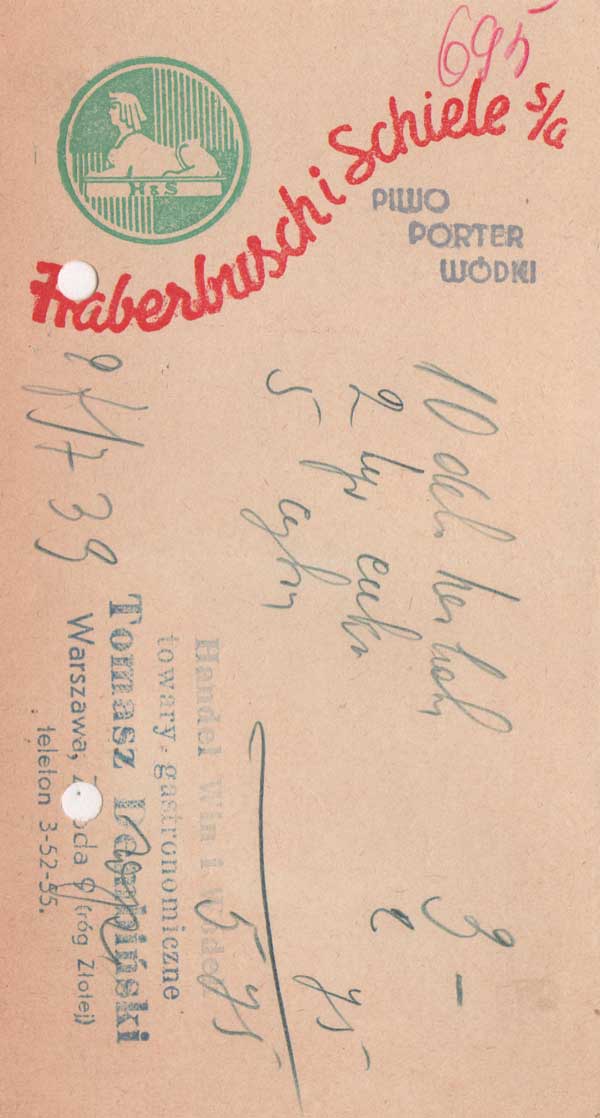 695
H & S
Haberbusch i Schiele s/a
PIWO
PORTER
WÓDKI
10 dek 3 -
2 kg 2
5 cytryn 95
5 95
7 39
Handel Win i Wódek
towary gastronomiczne
Tomasz Dembiński
Warszawa, 9 (róg Złotej)
telefon 3-52-55.